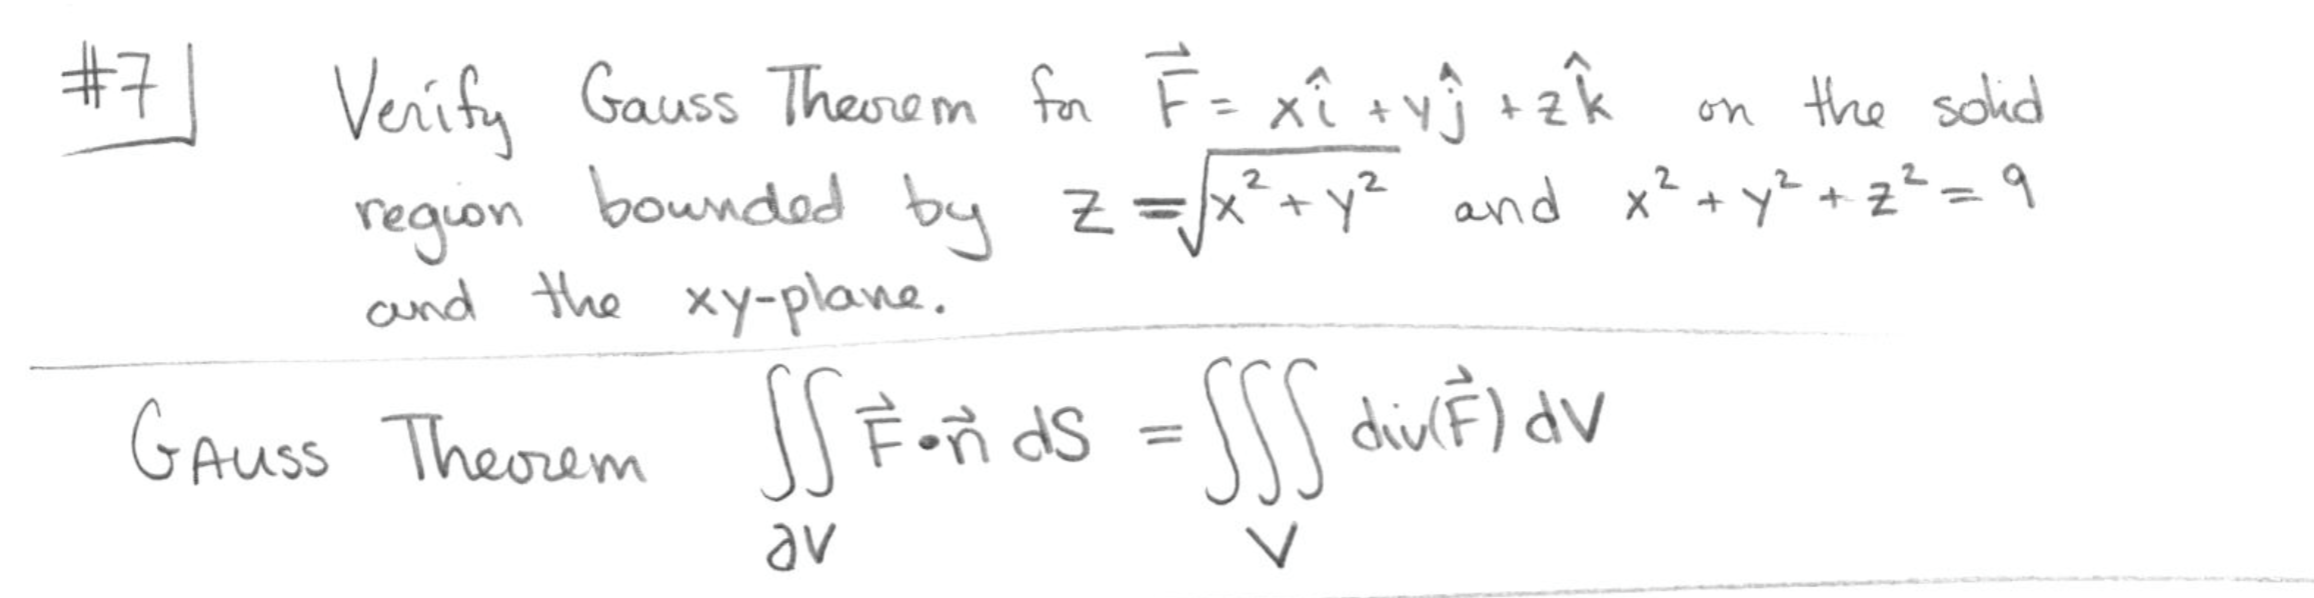 #7 Verify Gauss Theorem for F⃗ = xî + yĵ + zk̂ on the solid
region bounded by z = √(x² + y²) and x² + y² + z² = 9
and the xy-plane.
Gauss Theorem ∬_∂V F⃗ • n⃗ dS = ∭_V div(F⃗) dV